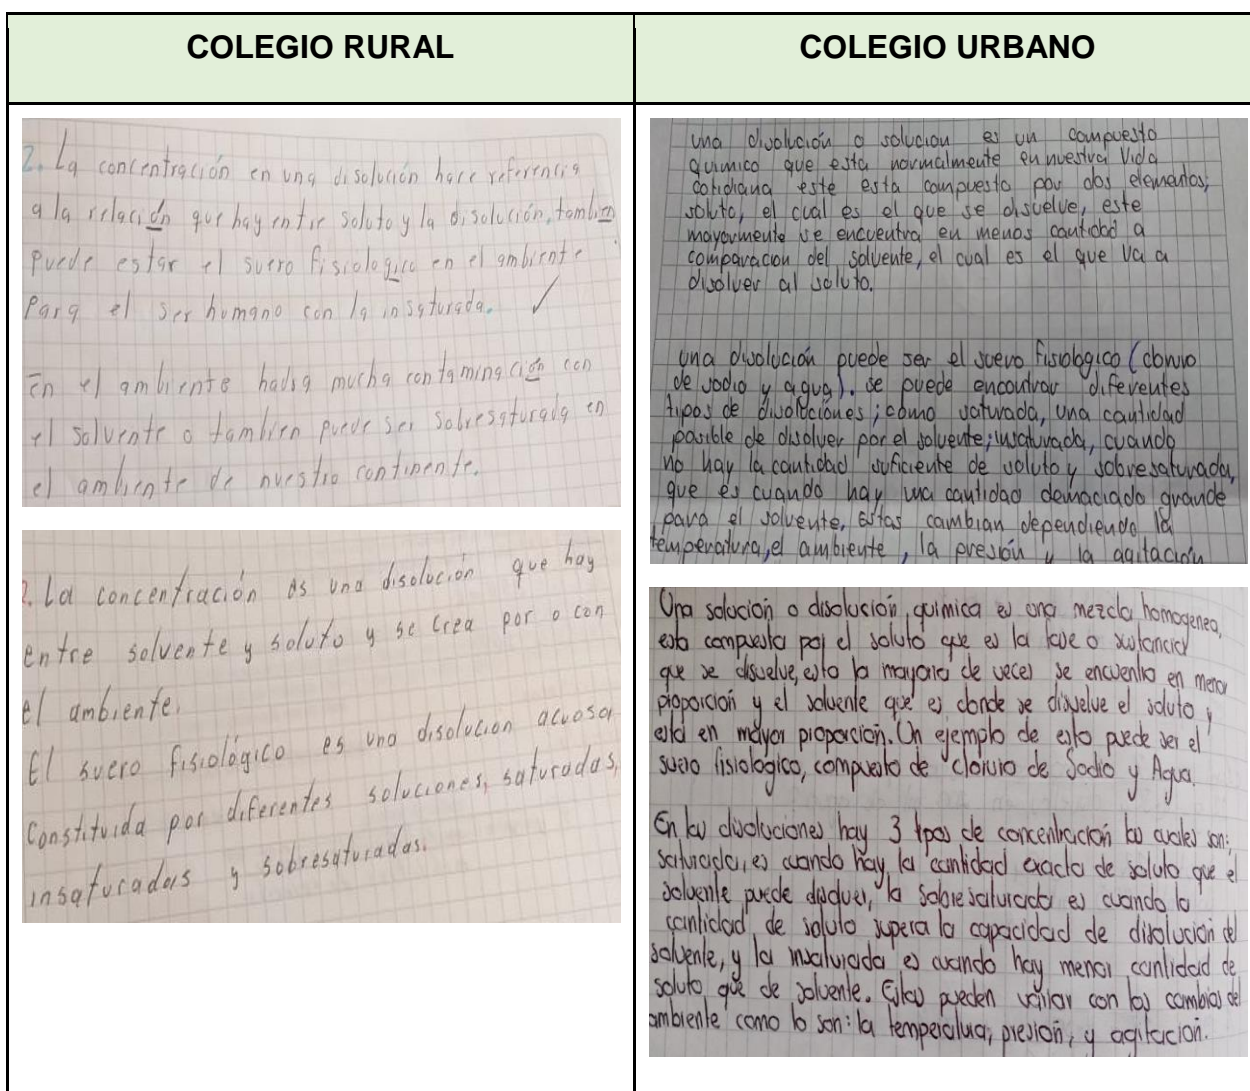 COLEGIO RURAL
COLEGIO URBANO
2. La concentración en una disolución hace referencia
a la relación que hay entre soluto y la disolución, tambien
puede estar el suero fisiologico en el ambiente
Para el ser humano con la insaturada. ✓
En el ambiente mucha contaminación con
el solvente o tambien puede ser sobresaturada en
el ambiente de nuestro continente.
2. La concentración es una disolución que hay
entre solvente y soluto y se crea por o con
el ambiente.
El suero fisiológico es una disolución acuosa
Constituida por diferentes soluciones, saturadas,
insaturadas y sobresaturadas.
una disolución o solucion es un compuesto
quimico que esta normalmente en nuestra vida
cotidiana este esta compuesto por dos elementos;
soluto, el cual es el que se disuelve, este
mayormente se encuentra en menos cantidad a
comparacion del solvente, el cual es el que va a
disolver al soluto.
una disolución puede ser el suero fisiologico (cloruro
de sodio y agua). se puede encontrar diferentes
tipos de disoluciones; como saturada, una cantidad
posible de disolver por el solvente; insaturada, cuando
no hay la cantidad suficiente de soluto y sobresaturada,
que es cuando hay una cantidad demaciado grande
para el solvente, Estas cambian dependiendo la
temperatura, el ambiente, la presión y la agitación
Una solocion o disolución quimica es una mezcla homogenea,
esta compuesta por el soluto que es la o sustancia
que se disuelve, esto la mayoria de veces se encuentra en menor
proporción y el solvente que es donde se disuelve el soluto y
está en mayor proporción. Un ejemplo de esto puede ser el
suero fisiologico, compuesto de cloruro de Sodio y Agua.
En las disoluciones hay 3 tipos de concentración los cuales son;
saturada, es cuando hay la cantidad exacta de soluto que el
solvente puede la sobresaturada es cuando la
cantidad de soluto supera la capacidad de disolución del
solvente, y la insaturada es cuando hay menor cantidad de
soluto que de solvente. Estas pueden variar con los cambios del
ambiente como lo son: la temperatura, presión, y agitacion.